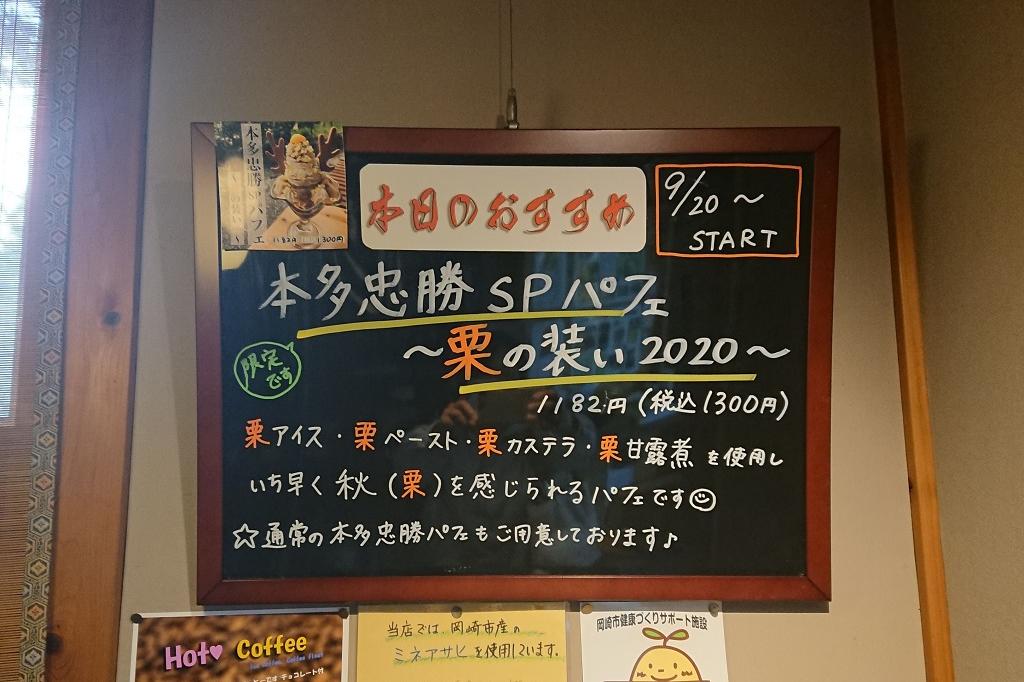 本多忠勝SPパフェ
1182円
1300円
本日のおすすめ
9/20～
START
本多忠勝SPパフェ
～栗の装い2020～
限定
です
1182円(税込1300円)
栗アイス・栗ペースト・栗カステラ・栗甘露煮を使用し
いち早く秋(栗)を感じられるパフェです
☆通常の本多忠勝パフェもご用意しております♪
Hot♥ Coffee
チョコレート付
当店では、岡崎市産の
ミネアサヒを使用しています。
岡崎市健康づくりサポート施設